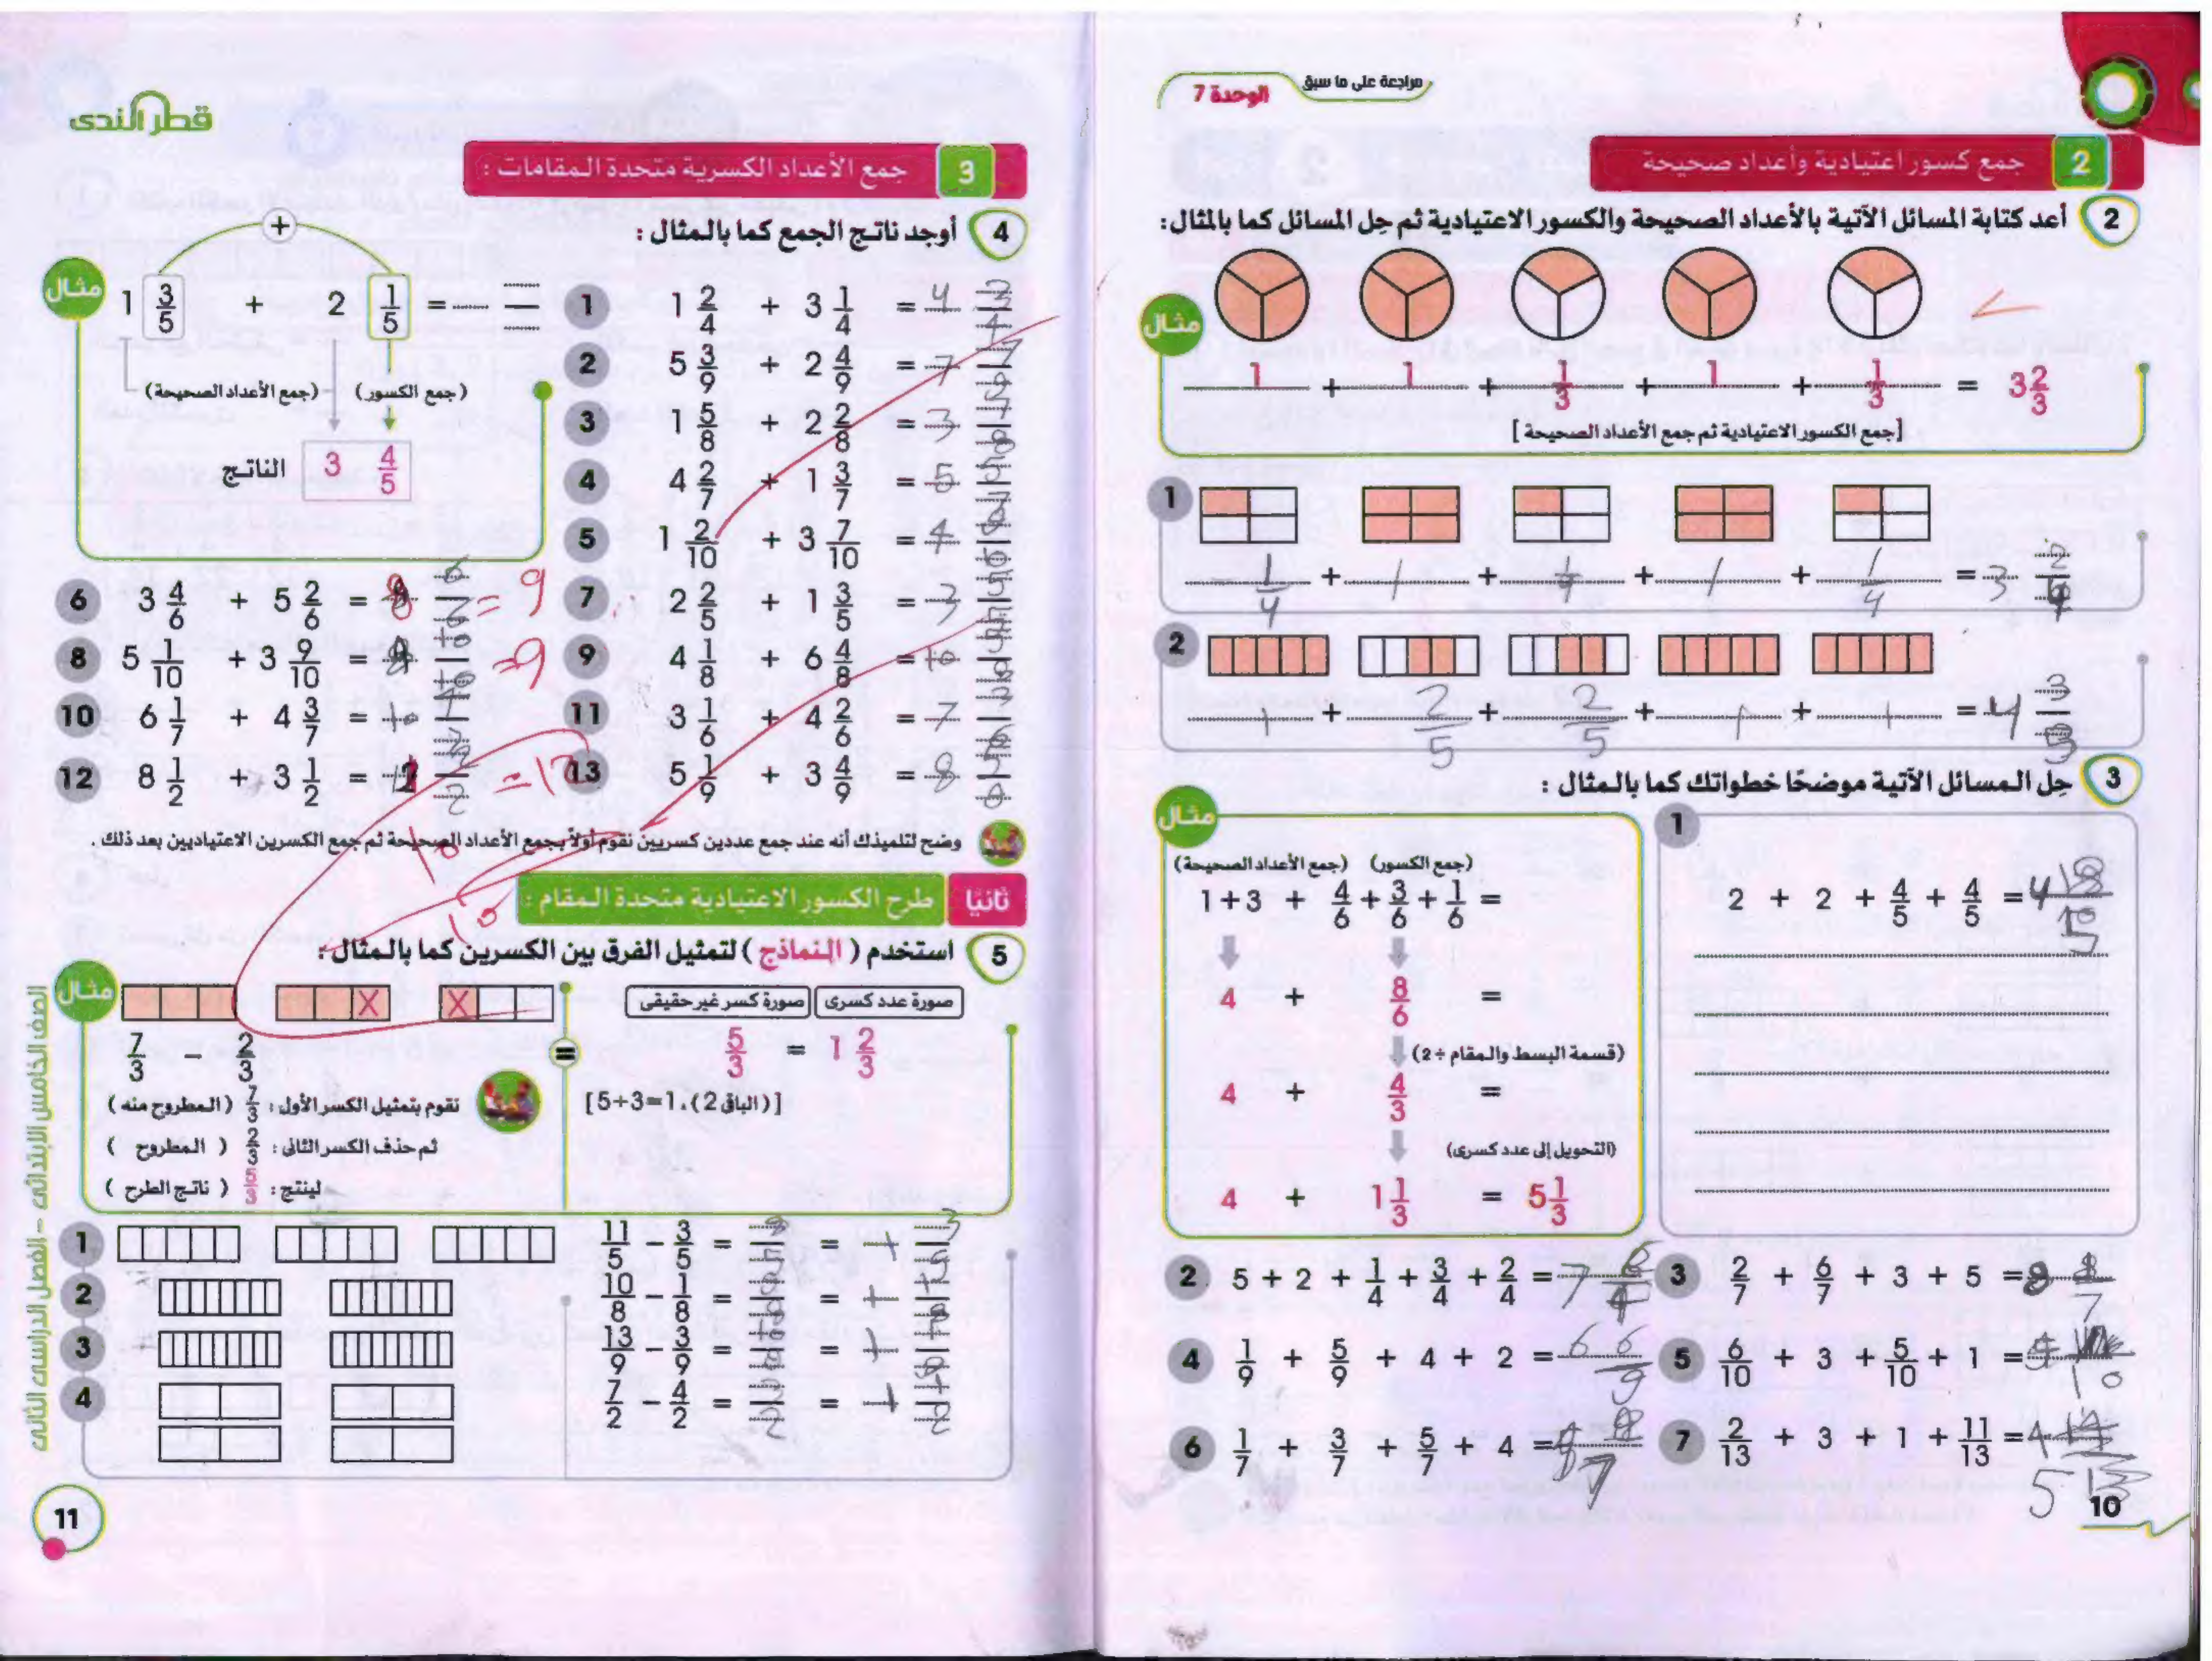 مراجعة على ما سبق
الوحدة 7
2 جمع كسور اعتيادية وأعداد صحيحة
2 أعد كتابة المسائل الآتية بالأعداد الصحيحة والكسور الاعتيادية ثم حِل المسائل كما بالمثال:
مثال
1 + 1 + 1/3 + 1 + 1/3 = 3 2/3
[جمع الكسور الاعتيادية ثم جمع الأعداد الصحيحة]
1
1/4 + 1 + 1/4 + 1 + 1/4 = 3 2/4
2
1 + 2/5 + 2/5 + 1 + 1 = 4 3/5
3 حِل المسائل الآتية موضحًا خطواتك كما بالمثال :
مثال
(جمع الأعداد الصحيحة) (جمع الكسور)
1+3 + 4/6 + 3/6 + 1/6 =
4 + 8/6 =
(قسمة البسط والمقام ÷2)
4 + 4/3 =
(التحويل إلى عدد كسرى)
4 + 1 1/3 = 5 1/3
1
2 + 2 + 4/5 + 4/5 = 4
2 5 + 2 + 1/4 + 3/4 + 2/4 = 7 6/4
3 2/7 + 6/7 + 3 + 5 =
4 1/9 + 5/9 + 4 + 2 = 6 6/9
5 6/10 + 3 + 5/10 + 1 =
6 1/7 + 3/7 + 5/7 + 4 =
7 2/13 + 3 + 1 + 11/13 = 4
5
10
قطر الندى
3 جمع الأعداد الكسرية متحدة المقامات :
4 أوجد ناتج الجمع كما بالمثال :
مثال
+
1 3/5 + 2 1/5 =
(جمع الأعداد الصحيحة) (جمع الكسور)
الناتج 3 4/5
1 1 2/4 + 3 1/4 = 4 3/4
2 5 3/9 + 2 4/9 = 7 7/9
3 1 5/8 + 2 2/8 = 3 7/8
4 4 2/7 + 1 3/7 = 5 5/7
5 1 2/10 + 3 7/10 = 4 9/10
6 3 4/6 + 5 2/6 = 8 6/6 = 9
7 2 2/5 + 1 3/5 = 3 5/5
8 5 1/10 + 3 9/10 = 8 10/10 = 9
9 4 1/8 + 6 4/8 = 10 5/8
10 6 1/7 + 4 3/7 = 10 4/7
11 3 1/6 + 4 2/6 = 7 3/6
12 8 1/2 + 3 1/2 =
13 5 1/9 + 3 4/9 = 8 5/9
وضح لتلميذك أنه عند جمع عددين كسريين نقوم أولاً بجمع الأعداد الصحيحة ثم جمع الكسرين الاعتياديين بعد ذلك .
ثانيًا طرح الكسور الاعتيادية متحدة المقام :
5 استخدم ( النماذج ) لتمثيل الفرق بين الكسرين كما بالمثال :
مثال
X X
صورة عدد كسرى صورة كسر غير حقيقى
7/3 - 2/3 = 5/3 = 1 2/3
نقوم بتمثيل الكسر الأول : 7/3 ( المطروح منه )
[5÷3=1، (الباق 2)]
ثم حذف الكسر الثانى : 2/3 ( المطروح )
لينتج : 5/3 ( ناتج الطرح )
1 11/5 - 3/5 = = 1 3/5
2 10/8 - 1/8 = 9/8 = 1 1/8
3 13/9 - 3/9 = 10/9 = 1 1/9
4 7/2 - 4/2 = = 1 1/2
الصف الخامس الابتدائى - الفصل الدراسى الثانى
11